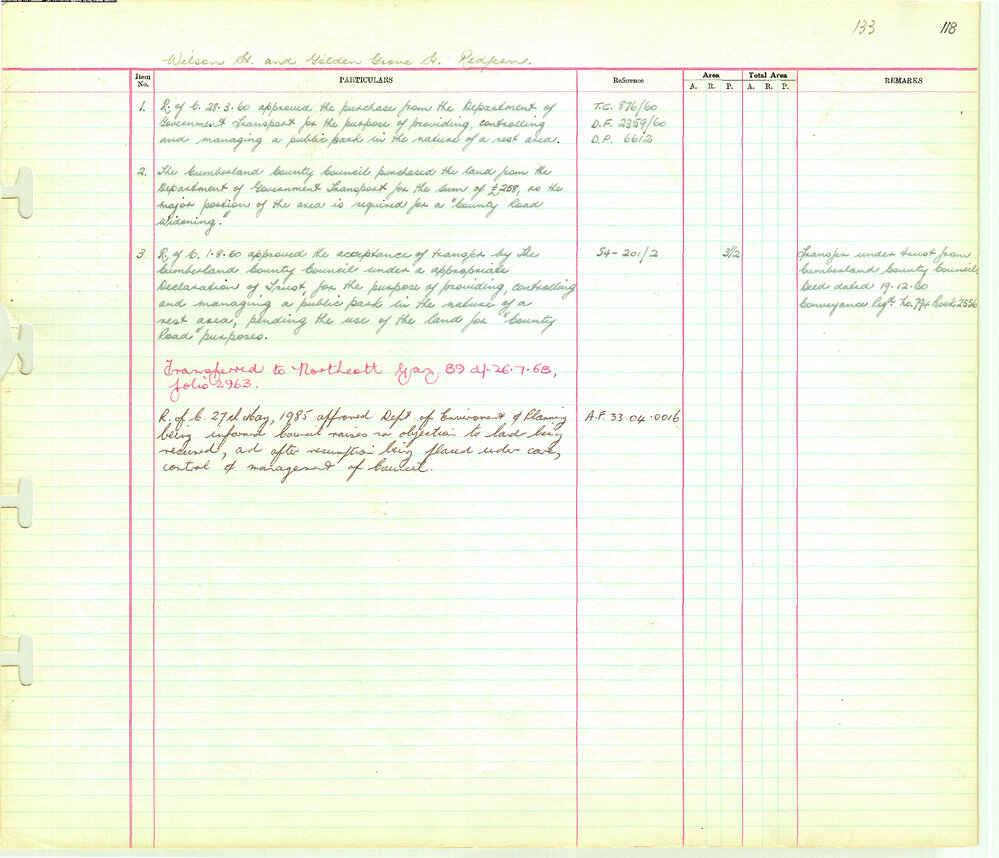 133 118
Wilson St. and Golden Grove St. Redfern.
Item No. PARTICULARS Reference Area Total Area REMARKS
A. R. P. A. R. P.
1. R. of C. 28.3.60 approved the purchase from the Department of T.C. 876/60
Government Transport for the purpose of providing, controlling D.F. 2359/60
and managing a public park in the nature of a rest area. D.P. 6612
2. The Cumberland County Council purchased the land from the
Department of Government Transport for the sum of £258, as the
major portion of the area is required for a "County Road
Widening."
3. R. of C. 1.8.60 approved the acceptance of transfer by the S4-201/2 3½ Transfer under trust from
Cumberland County Council under a appropriate Cumberland County Council,
Declaration of Trust, for the purpose of providing, controlling Deed dated 19.12.60
and managing a public park in the nature of a Conveyance Regd. No. 794 Book 2556
rest area, pending the use of the land for "County
Road" purposes.
Transferred to Northcott Gaz, 89 d/- 26.7.68,
folio 2963.
R. of C. 27th May, 1985 approved Dept. of Enviroment & Planning A.F. 33.04.0016
being informed Council raises no objection to land being
resumed, ad after resumption being placed under care,
control & management of Council.